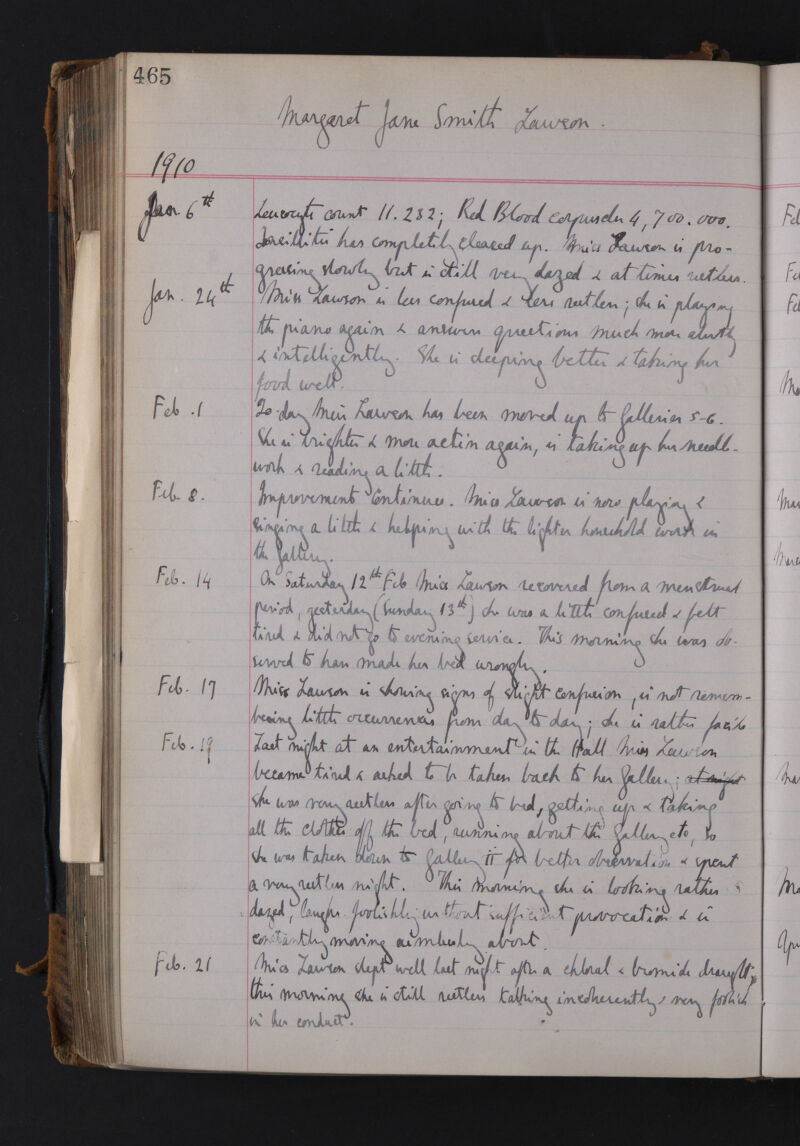 465
Margaret Jane Smith Lawson.
1910
Jan. 6th Leucocyte count 11.232; Red Blood corpuscles 4,700.000.
Tonsillitis has completely cleared up. Miss Lawson is pro-
gressing slowly but is still very dazed & at times restless.
Jan. 24th Miss Lawson is less confused & less restless; she is playing
the piano again & answers questions much more alertly
& intelligently. She is sleeping better & taking her
food well.
Feb. 1 To-day Miss Lawson has been moved up to Galleries 5-6.
She is brighter & more active again, is taking up her needle-
work & reading a little.
Feb. 8. Improvement continues. Miss Lawson is now playing &
singing a little & helping with the lighter household work in
the Gallery.
Feb. 14 On Saturday 12th Feb Miss Lawson recovered from a menstrual
period, yesterday (Sunday 13th) she was a little confused & felt
tired & did not go to evening service. This morning she was ob-
served to have made her bed wrongly.
Feb. 17 Miss Lawson is showing signs of slight confusion, is not remem-
bering little occurrences from day to day; she is rather facile
Feb. 19 Last night at an entertainment in the Hall Miss Lawson
became tired & asked to be taken back to her Gallery; at night
she was very restless after going to bed, getting up & taking
all the clothes off the bed, running about the Gallery etc, so
she was taken down to Gallery II for better observation & spent
a very restless night. This morning she is looking rather
dazed, laughs foolishly without sufficient provocation & is
constantly moving aimlessly about.
Feb. 21 Miss Lawson slept well last night after a chloral & bromide draught,
this morning she is still restless talking incoherently & very foolish
in her conduct.